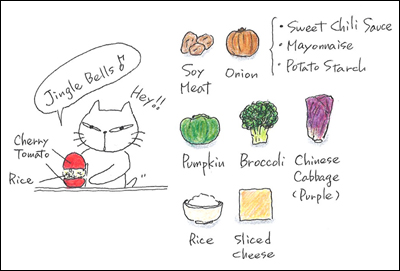 Jingle Bells♪
Hey!!
Cherry
Tomato
Rice
Soy
Meat
Onion
・Sweet Chili Sauce
・Mayonnaise
・Potato Starch
Pumpkin
Broccoli
Chinese
Cabbage
(Purple)
Rice
Sliced
Cheese